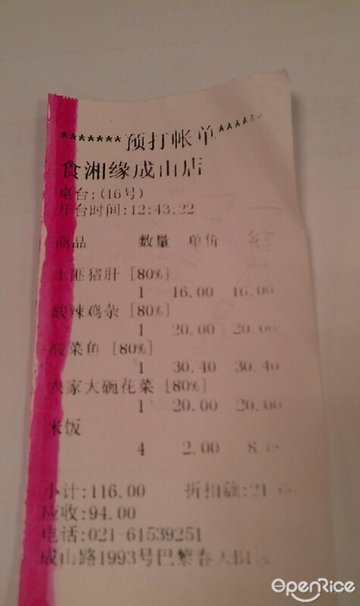 *******预打帐单******
食湘缘成山店
桌台:(16号)
开台时间:12:43:22
商品 数量 单价
猪肝 [80%]
1 16.00 16.00
酸辣鸡杂 [80%]
1 20.00 20.00
酸菜鱼 [80%]
1 30.40 30.40
农家大碗花菜 [80%]
1 20.00 20.00
米饭
4 2.00
小计:116.00 折扣额:21
应收:94.00
电话:021-61539251
成山路1993号巴黎春天B1
OpenRice